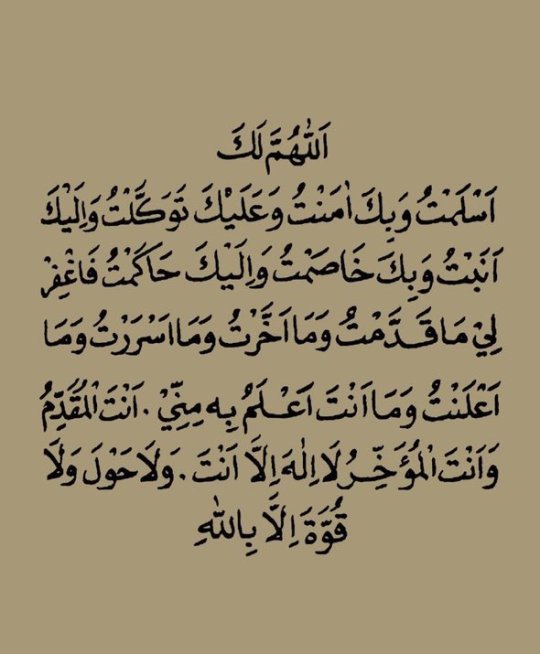 اَللّٰهُمَّ لَكَ
اَسْلَمْتُ وَبِكَ اٰمَنْتُ وَعَلَيْكَ تَوَكَّلْتُ وَاِلَيْكَ
اَنَبْتُ وَبِكَ خَاصَمْتُ وَاِلَيْكَ حَاكَمْتُ فَاغْفِرْ
لِيْ مَا قَدَّمْتُ وَمَا اَخَّرْتُ وَمَا اَسْرَرْتُ وَمَا
اَعْلَنْتُ وَمَا اَنْتَ اَعْلَمُ بِهِ مِنِّيْ. اَنْتَ الْمُقَدِّمُ
وَاَنْتَ الْمُؤَخِّرُ لَا اِلٰهَ اِلَّا اَنْتَ. وَلَا حَوْلَ وَلَا
قُوَّةَ اِلَّا بِاللّٰهِ